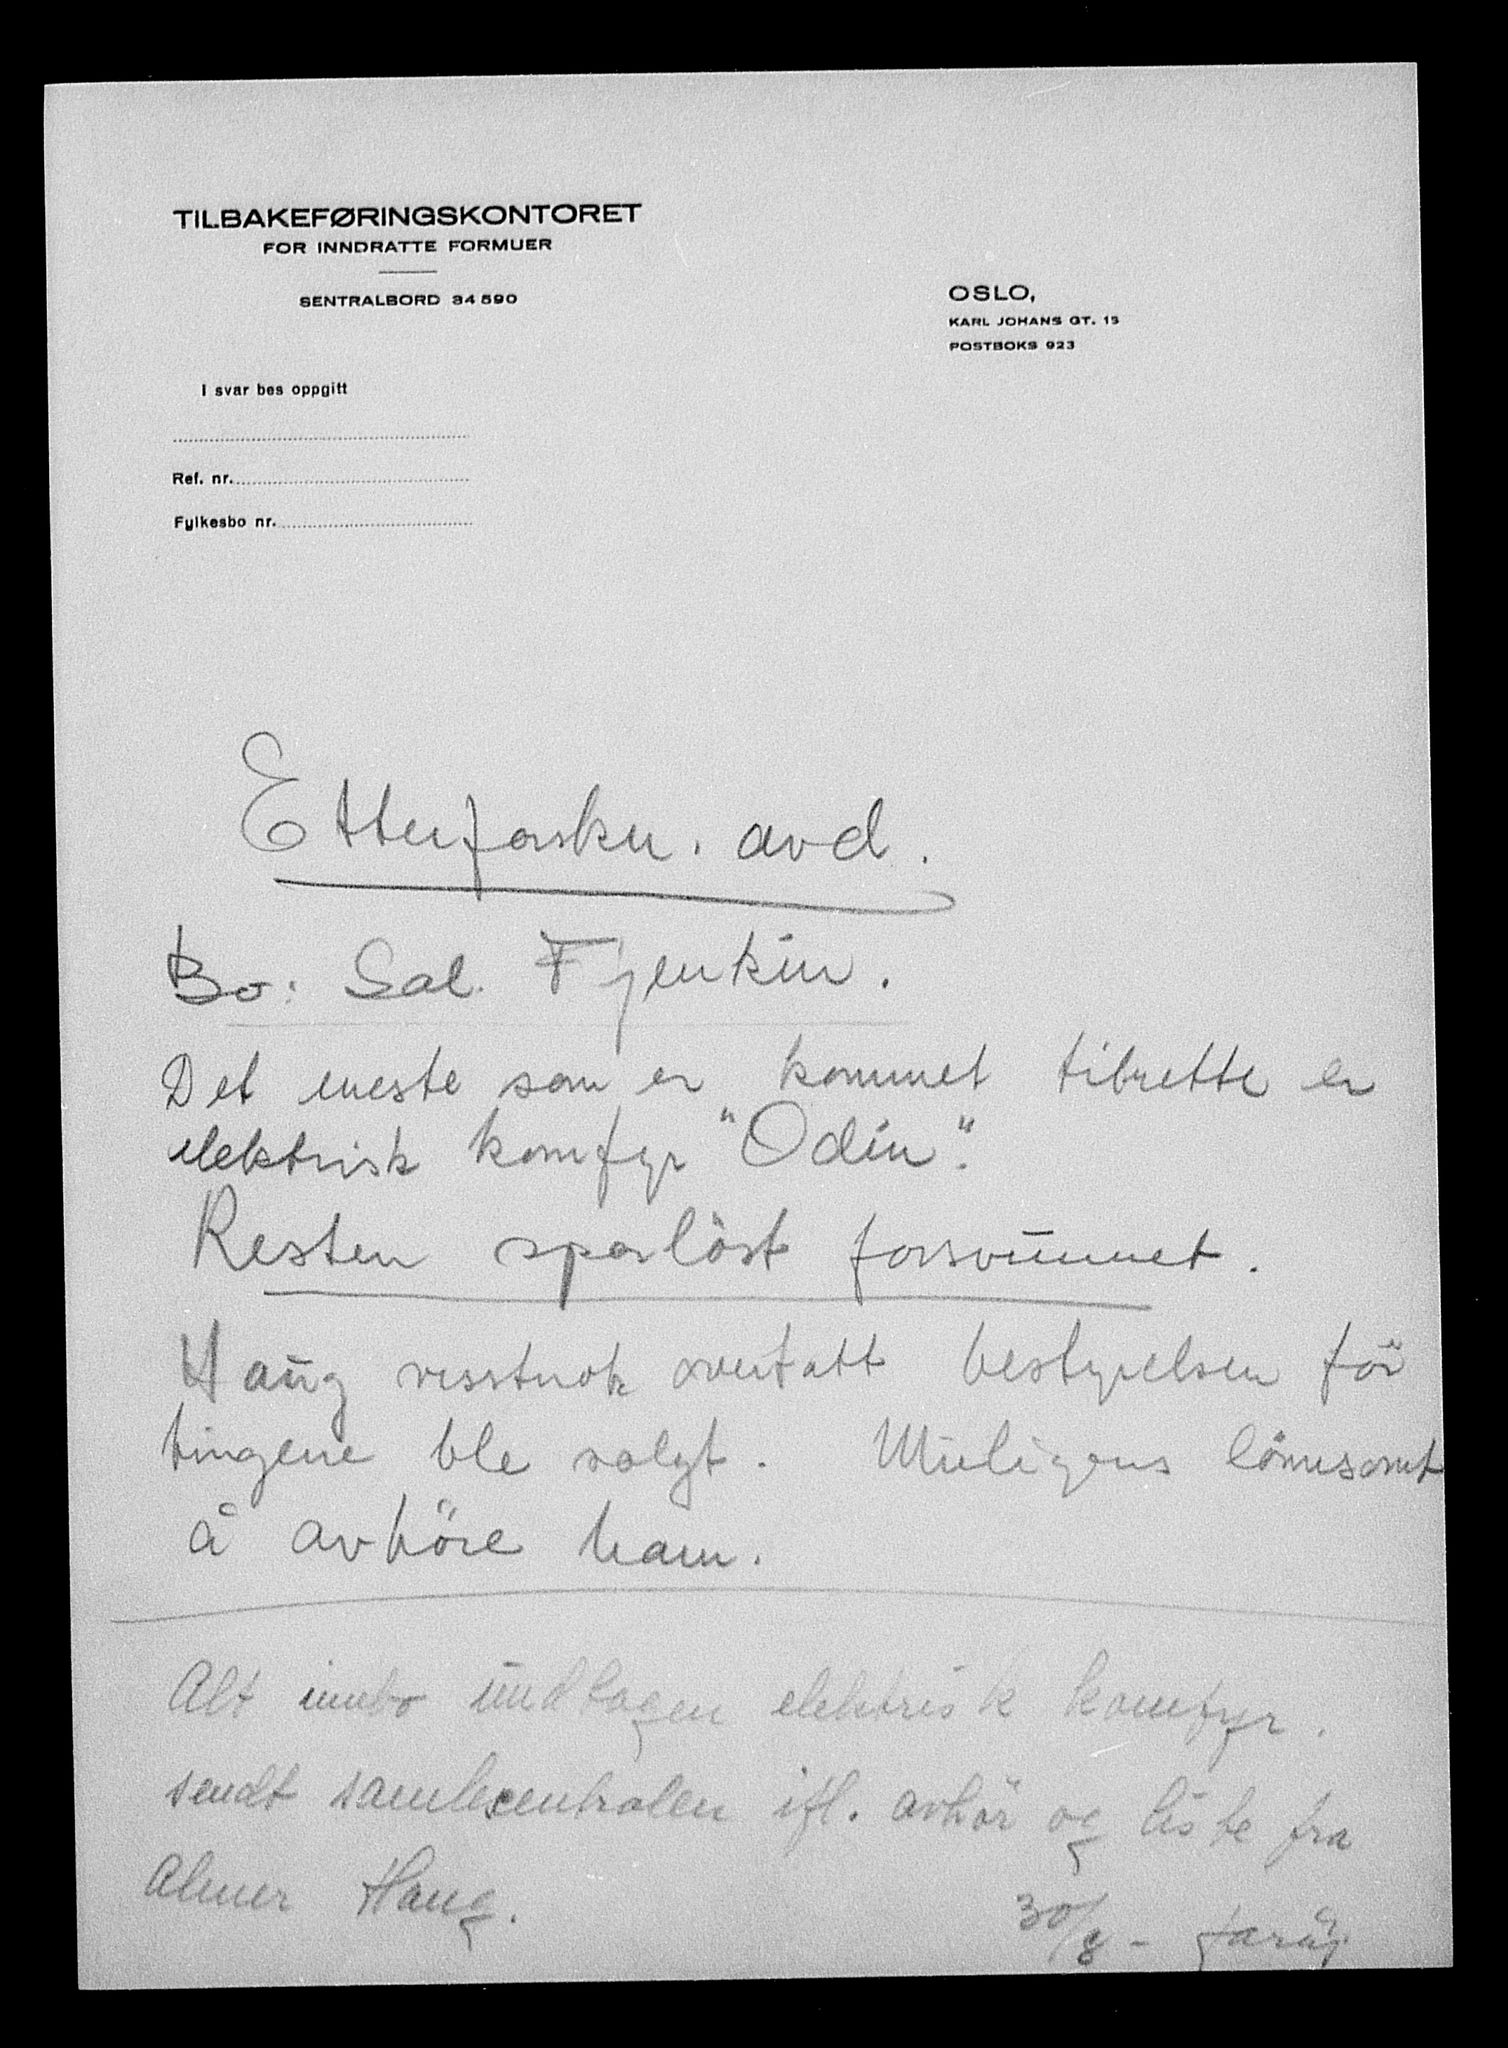 TILBAKEFØRINGSKONTORET
FOR INNDRATTE FORMUER
SENTRALBORD 34590
OSLO,
KARL JOHANS GT. 15
POSTBOKS 923
I svar bes oppgitt
Ref. nr.
Fylkesbo nr.
Etterforskn. avd.
Bo: Sal. Fjenkin.
Det eneste som er kommet tilrette er
elektrisk komfyr "Odin".
Resten sporløst forsvunnet.
Haug visstnok overtatt bestyrelsen før
tingene ble solgt. Muligens lönnsomt
å avhöre ham.
Alt innbo undtagen elektrisk komfyr.
sendt samlecentralen ifl. avhör og liste fra
Almer Haug.
30/8 -